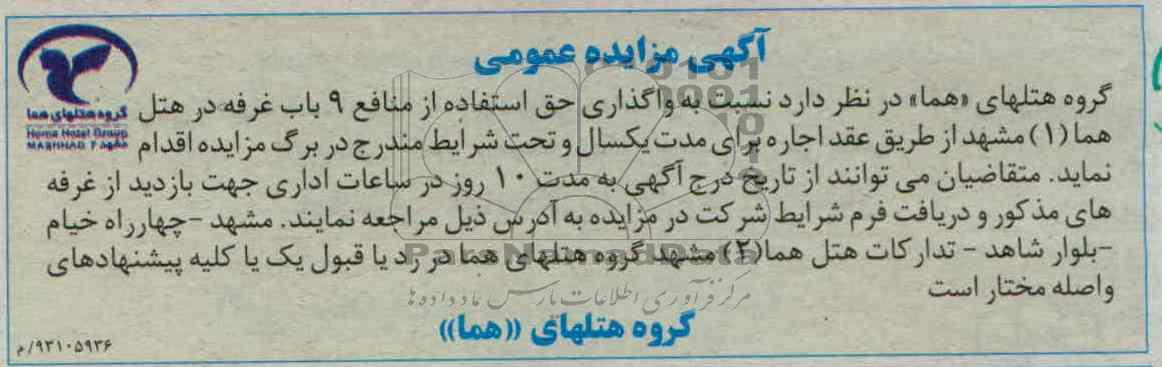 آگهی مزایده عمومی
گروه هتلهای هما
Homa Hotel Group
MASHHAD
گروه هتلهای «هما» در نظر دارد نسبت به واگذاری حق استفاده از منافع ۹ باب غرفه در هتل
هما (۱) مشهد از طریق عقد اجاره برای مدت یکسال و تحت شرایط مندرج در برگ مزایده اقدام
نماید. متقاضیان می توانند از تاریخ درج آگهی به مدت ۱۰ روز در ساعات اداری جهت بازدید از غرفه
های مذکور و دریافت فرم شرایط شرکت در مزایده به آدرس ذیل مراجعه نمایند. مشهد -چهارراه خیام
-بلوار شاهد - تدارکات هتل هما(۲) مشهد گروه هتلهای هما در رد یا قبول یک یا کلیه پیشنهادهای
واصله مختار است
ParsNamadData
مرکز فرآوری اطلاعات پارس نماد داده ها
گروه هتلهای ((هما))
۹۳۱۰۵۹۳۶/م